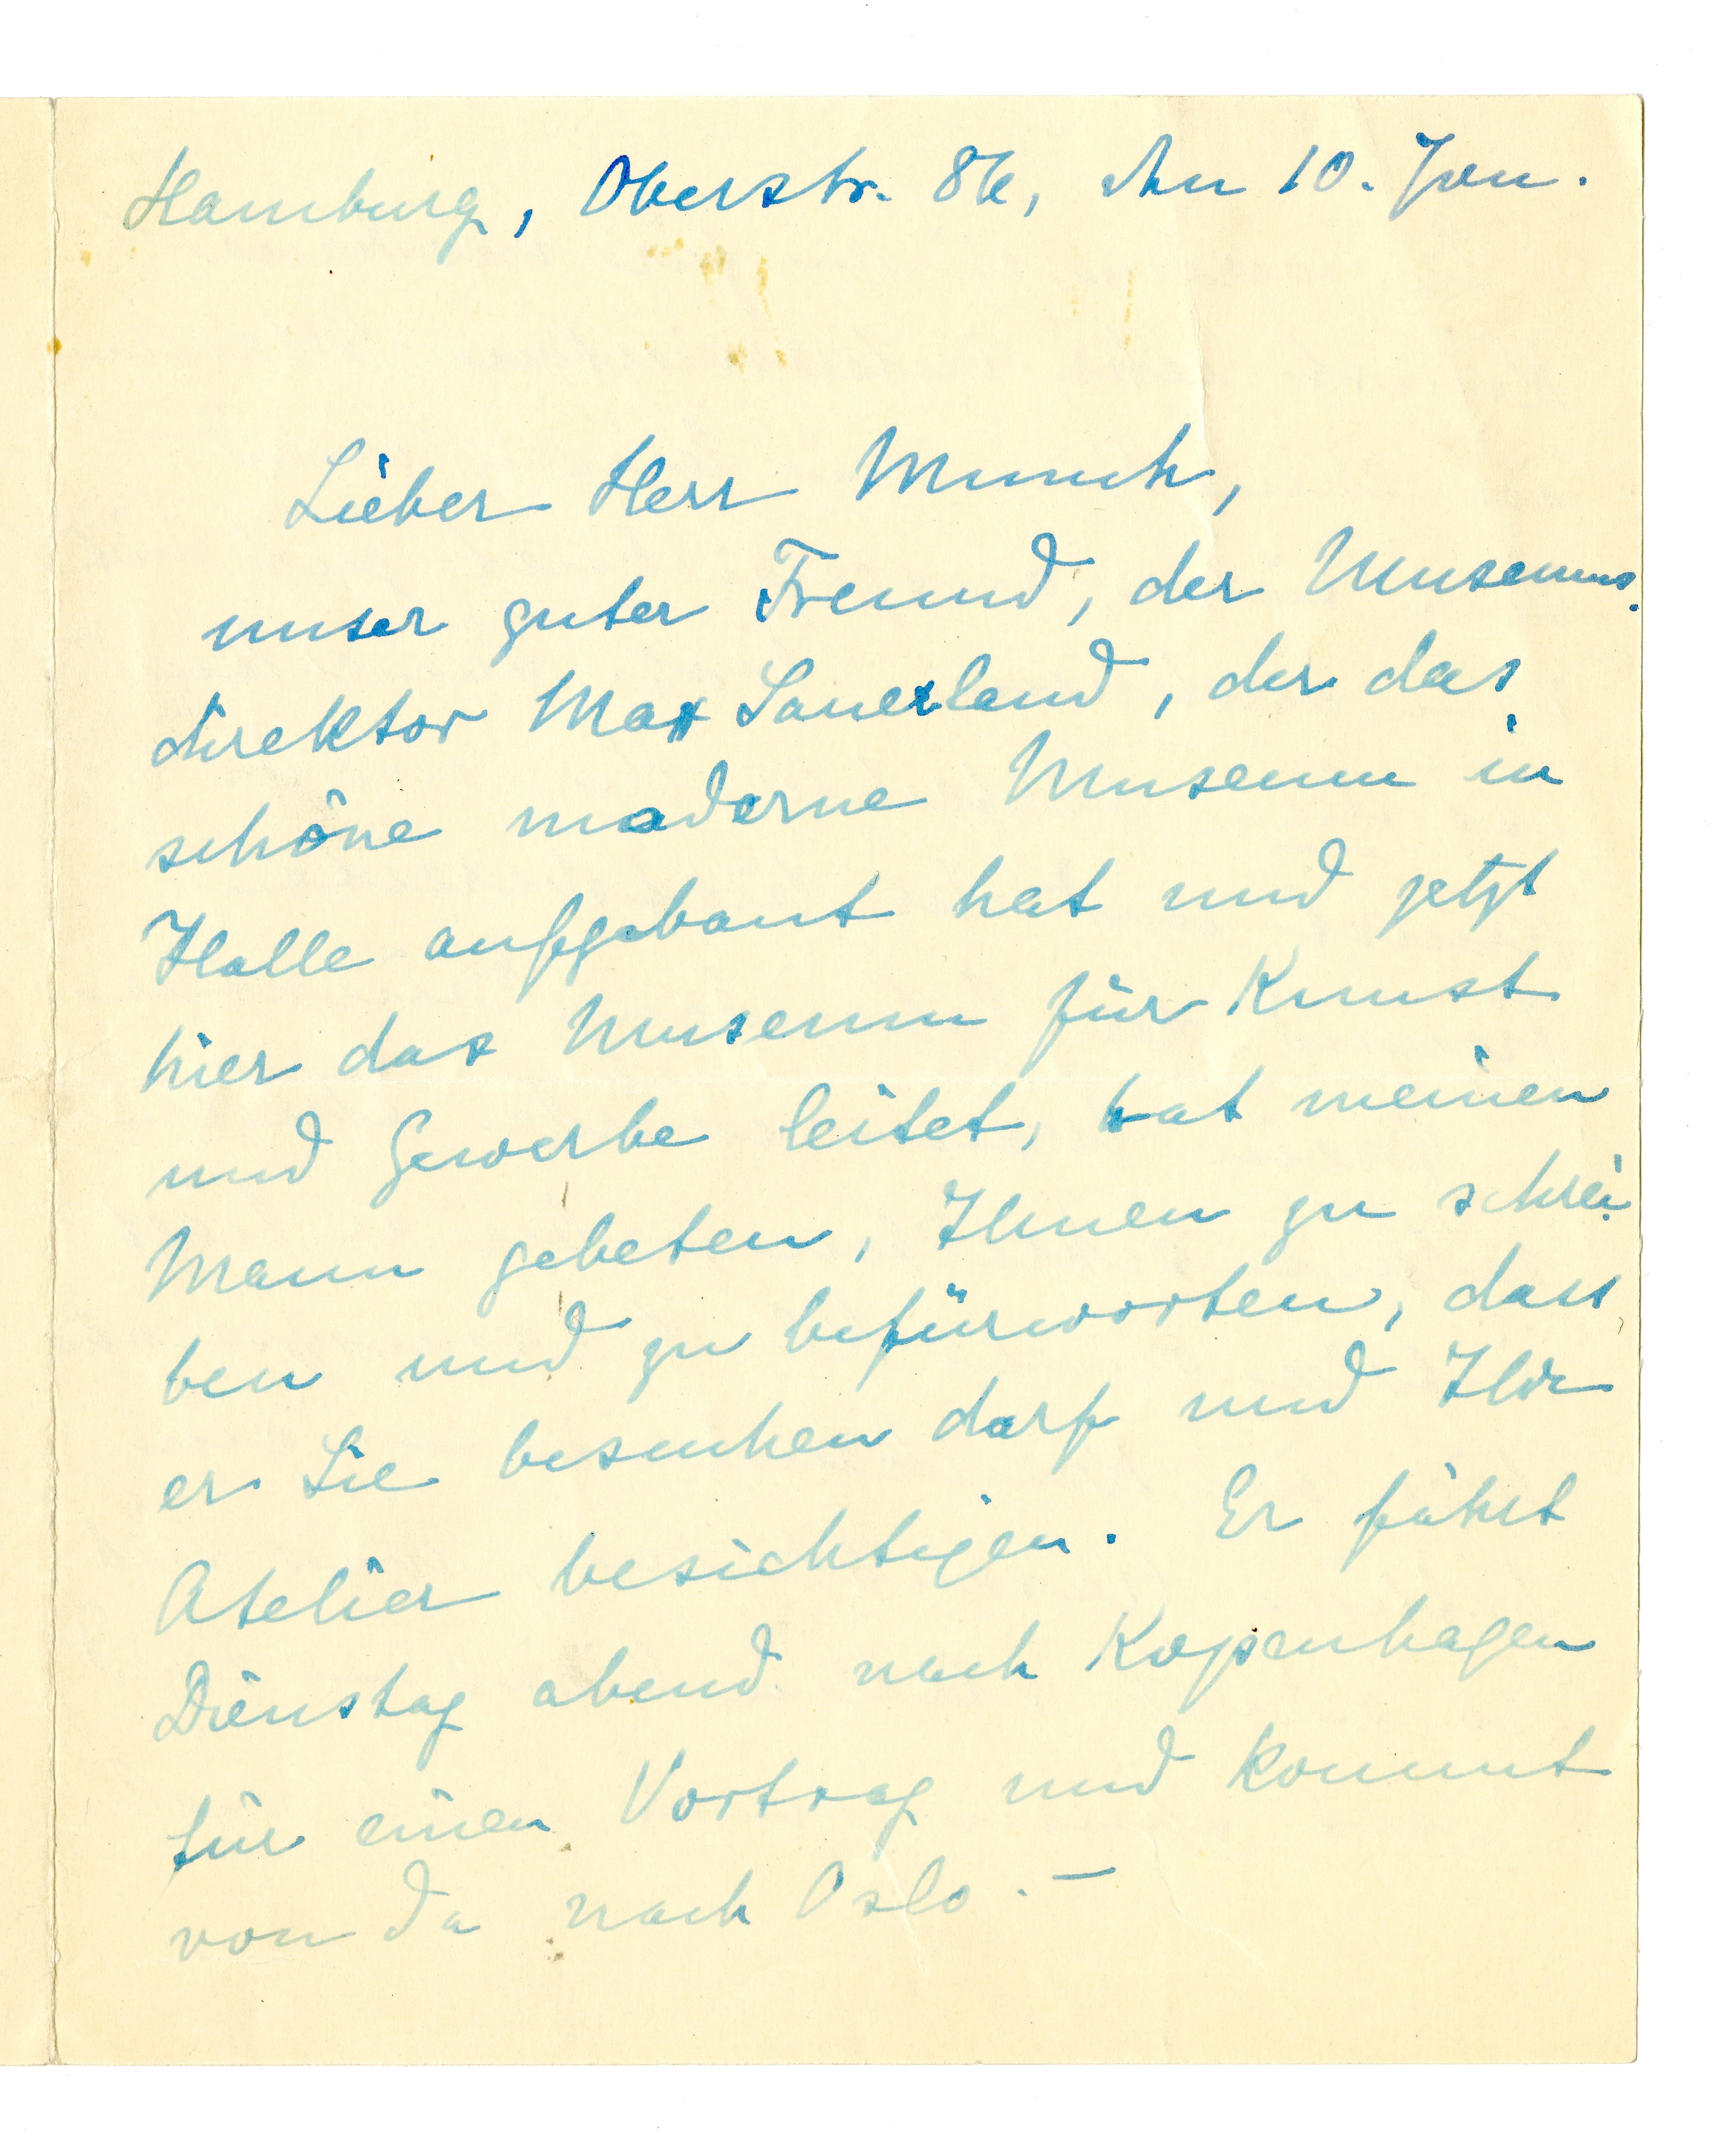 Hamburg, Oberstr. 86, den 10. Jan.
Lieber Herr Munch,
unser guter Freund, der Museums-
direktor Max Sauerland, der das
schöne moderne Museum in
Halle aufgebaut hat und jetzt
hier das Museum für Kunst
und Gewerbe leitet, bat meinen
Mann gebeten, Ihnen zu schrei-
ben und zu befürworten, dass
er Sie besuchen darf und Ihr
Atelier besichtigen. Er fährt
Dienstag abend nach Kopenhagen
für einen Vortrag und kommt
von da nach Oslo. —